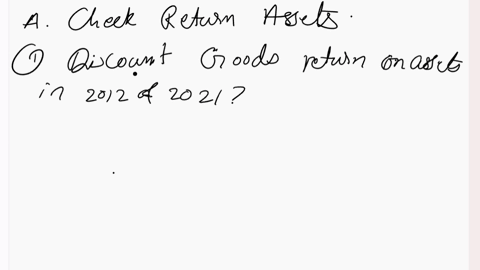 A. Check Return Assets.
① Discount Goods return on assets
in 2012 & 2021?